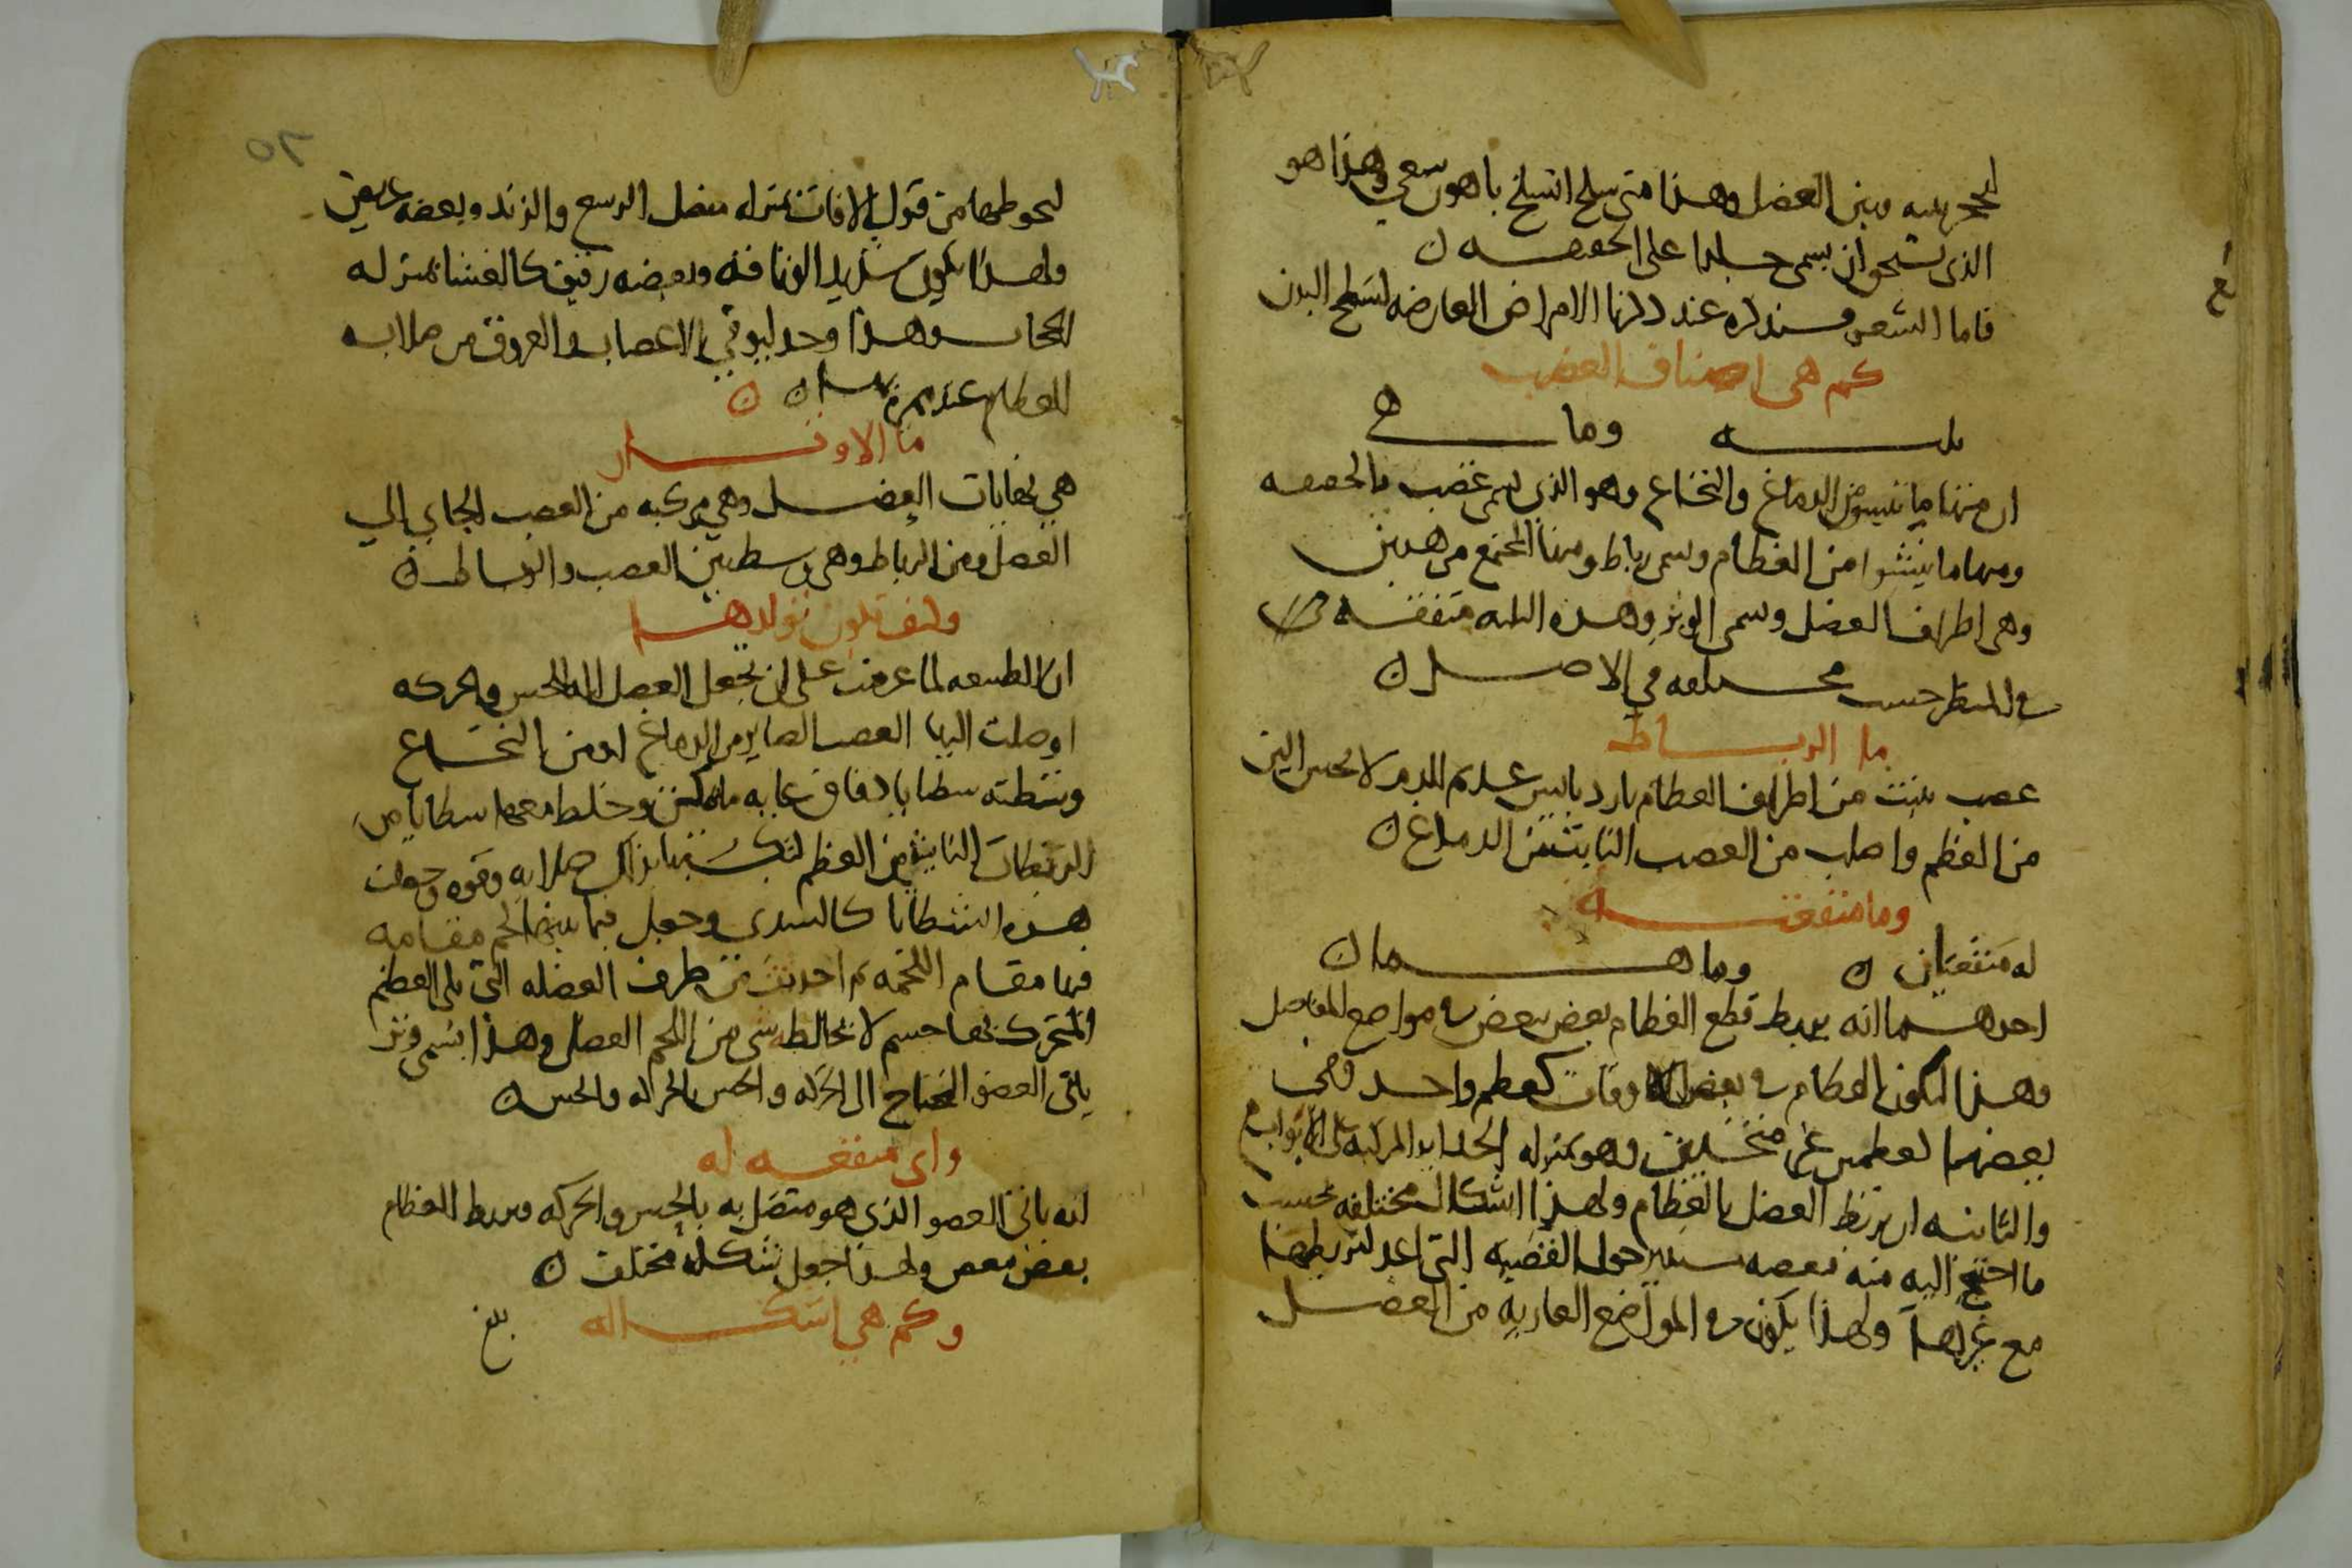 وبين العضل وهذا متى سلخ انسلخ باهون سعي وهذا هو
الذي يستحق ان يسمى جلدا على الحقيقه ن
فاما الشعر فسنذكره عند ذكرنا الامراض العارضه لسطح البدن
كم هي اصناف العصب
ثلثه وما هي
ان منها ما ينشو من الدماغ والنخاع وهو الذي يسمى عصب بالحقيقه
ومنها ما ينشوا من العظام ويسمى رباط ومنها المجتمع من هذين
وهي اطراف العضل ويسمى الوتر وهذه الثلثه متفقه
في المنظر حسب مختلفه في الاصل ن
ما الرباط
عصب ينبت من اطراف العظام بارد يابس عديم الدم لا يحس الين
من العظم واصلب من العصب النابت من الدماغ ن
وما منفعته
له منفعتان ن وما هما ن
احدهما انه يربط قطع العظام بعض ببعض في مواضع المفاصل
وهذا لتكون العظام في بعض الاوقات كعظم واحد وفي
بعضها كعظمين غير متخلفين وهو بمنزله الحدايد المركبه على الابواب
والثانيه ان يربط العضل بالعظام ولهذا اشكال مختلفه بحسب
ما احتيج اليه منه فبعضه يستدير حول القصبه التي اعد لتربطها
مع غيرها ولهذا يكون في المواضع العاريه من العضل
٥٢
ليحوطها من قبول الافات بمنزله مفصل الرسغ والزند وبعضه عريض
ولهذا يكون شديد الوثاقه وبعضه رقيق كالغشا بمنزله
الحجاب وهذا وجد ليوقي الاعصاب والعروق من صلابه
العظام عند ن ن
ما الاوتار
هي نهايات العضل وهي مركبه من العصب الجاي الي
العضل ومن الرباط وهي وسط بين العصب والرباط ن
وكيف تكون تولدها
ان الطبيعه لما عزمت على ان تجعل العضل اله الحس والحركه
اوصلت اليها العصب الصاير من الدماغ او من النخاع
وشظته شظايا دقاق غايه ما يمكن وخلط معها شظايا من
الرباطات النابته من العظم لتكسبها بذلك صلابه وقوه وجعلت
هذه الشظايا كالسدى وجعل فيما بينها لحم مقامه
فيها مقام اللحمه ثم احدثت من طرف العضله التي تلي العظم
المتحرك بها جسم لا يخالطه شي من اللحم العضل وهذا يسمى وتر
ياتي العضو المحتاج الى الحركه والحس بالحركه والحس ن
واي منفعه له
انه ياتي العضو الذي هو متصل به بالحس والحركه ويربط العظام
بعض ببعض ولهذا جعل بشكله مختلف ن
وكم هي اشكاله
بلغ